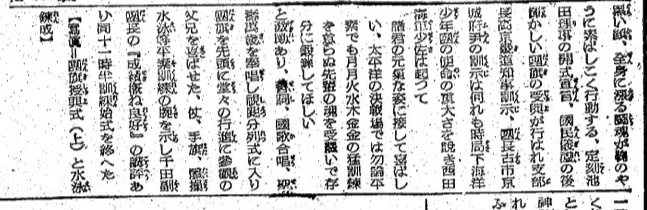 黒い顔、全身に漲る鬪魂が鞠のや
うに素ばしこく行動する、定刻池
田理事の開式宣言、國民儀禮の後
輝かしい團旗の授與が行はれ支部
長高京畿道知事訓示、團長古市京
城府尹の訓示は何れも時局下海洋
少年團の使命の重大さを説き西田
海軍少佐は起つて
諸君の元氣な姿に接して喜ばし
い、太平洋の決戰場では勿論平
素でも月月火水木金金の猛訓練
を怠らぬ先輩の魂を受繼いで存
分に鍛錬してほしい
と激励あり、宣詞、國歌合唱、聖
壽萬歳を奉唱し視閲分列式に入り
團旗を先頭に堂々の行進に參觀の
父兄を喜ばせた、伏、手旗、體操
水泳等卒業訓練の腕を示し千田副
團長の『成績概ね良好』の講評あ
り同十一時半訓練始式を終へた
【寫眞＝團旗授與式（上）と水泳
錬成】